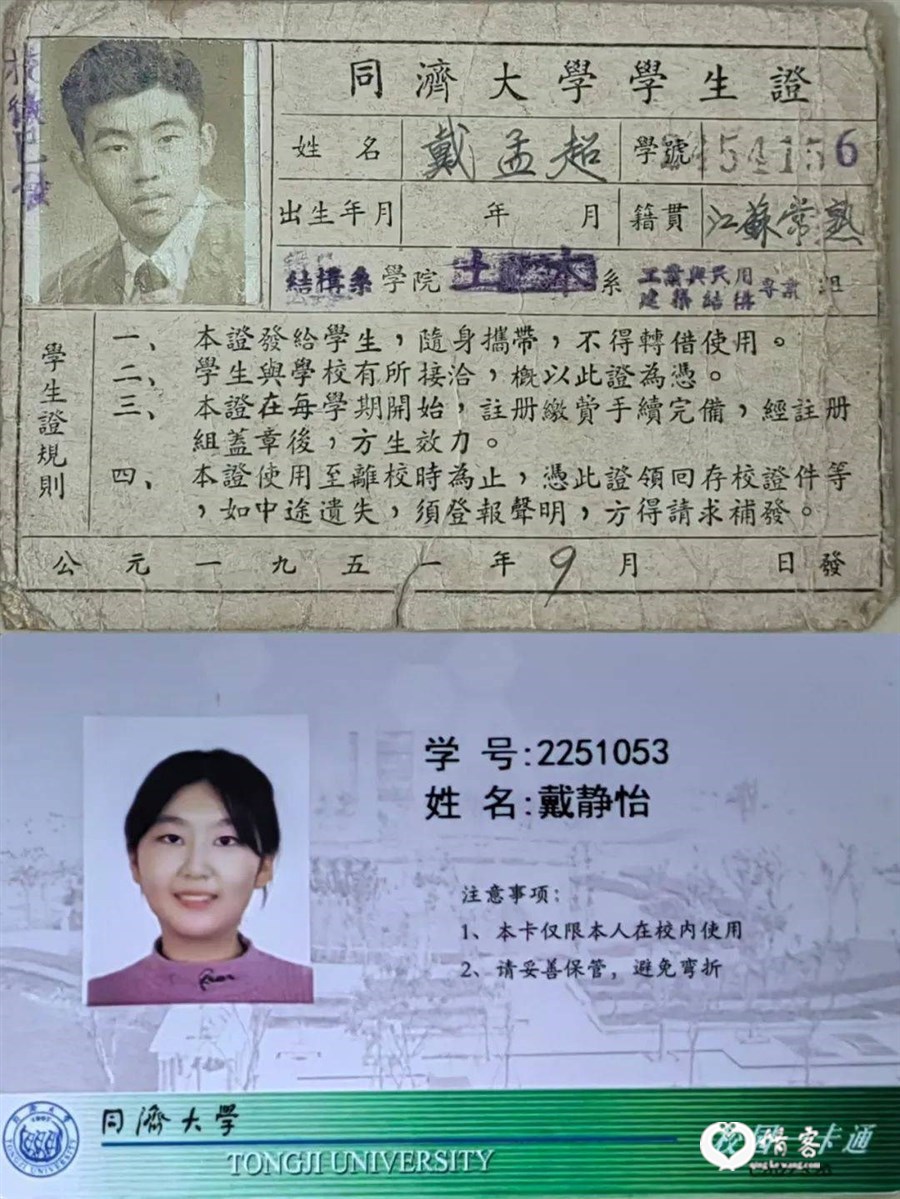 同濟大學學生證
姓 名 戴孟超 學號 54156
出生年月 年 月 籍貫 江蘇常熟
結構系 學院 土木 系 工業與民用
建築結構 專業 組
學生證規則
一、本證發給學生，隨身攜帶，不得轉借使用。
二、學生與學校有所接洽，概以此證為憑。
三、本證在每學期開始，註册繳費手續完備，經註册
組蓋章後，方生效力。
四、本證使用至離校時為止，憑此證領回存校證件等
，如中途遺失，須登報聲明，方得請求補發。
公元一九五一年9月 日發
学 号:2251053
姓 名:戴静怡
注意事项：
1、本卡仅限本人在校内使用
2、请妥善保管，避免弯折
同濟大學
TONGJI UNIVERSITY
校園一卡通
情客
qing ke wang.com